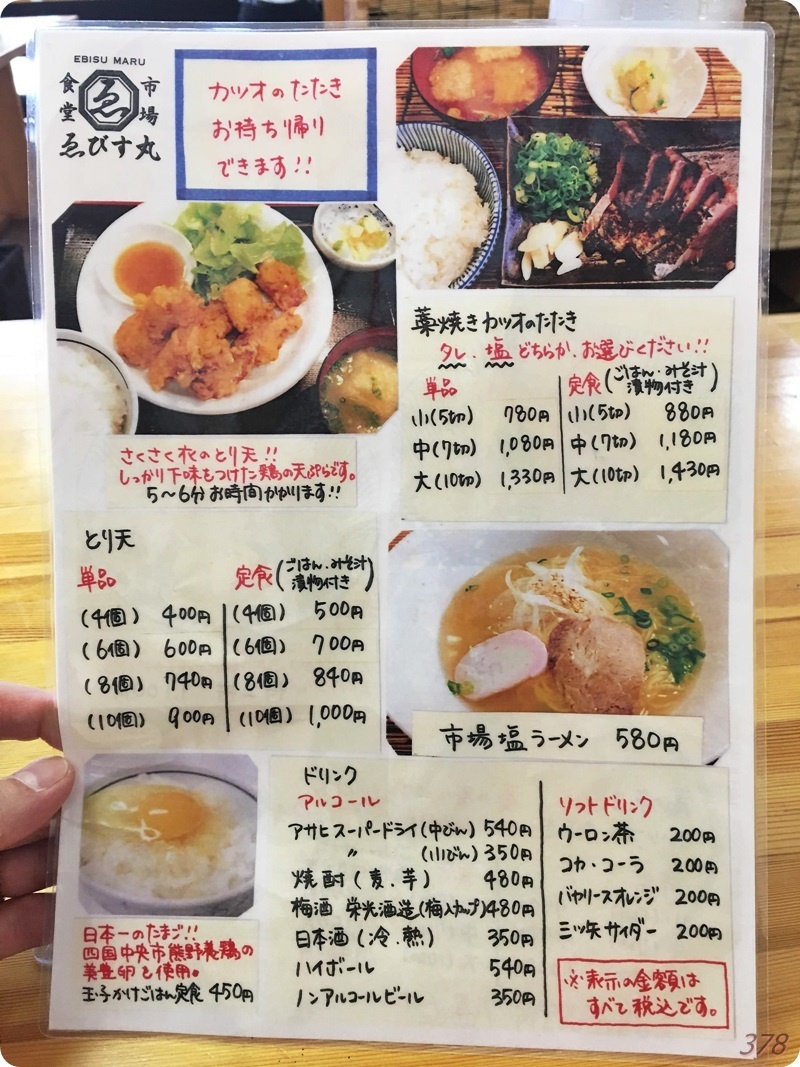 EBISU MARU
市場
食堂
ゑ
ゑびす丸
カツオのたたき
お持ち帰り
できます!!
藁焼きカツオのたたき
タレ、塩どちらか、お選びください!!
単品
小(5切) 780円
中(7切) 1,080円
大(10切) 1,330円
定食(ごはん・みそ汁 漬物付き)
小(5切) 880円
中(7切) 1,180円
大(10切) 1,430円
さくさく衣のとり天!!
しっかり下味をつけた鶏の天ぷらです。
5〜6分お時間かかります!!
とり天
単品
(4個) 400円
(6個) 600円
(8個) 740円
(10個) 900円
定食(ごはん・みそ汁 漬物付き)
(4個) 500円
(6個) 700円
(8個) 840円
(10個) 1,000円
市場塩ラーメン 580円
日本一のたまご!!
四国中央市熊野養鶏の
美豊卵を使用。
玉子かけごはん定食 450円
ドリンク
アルコール
アサヒスーパードライ(中びん) 540円
〃 (小びん) 350円
焼酎(麦、芋) 480円
梅酒 栄光酒造(梅入カップ) 480円
日本酒(冷、熱) 350円
ハイボール 540円
ノンアルコールビール 350円
ソフトドリンク
ウーロン茶 200円
コカ・コーラ 200円
バヤリースオレンジ 200円
三ツ矢サイダー 200円
※表示の金額は
すべて税込です。
378